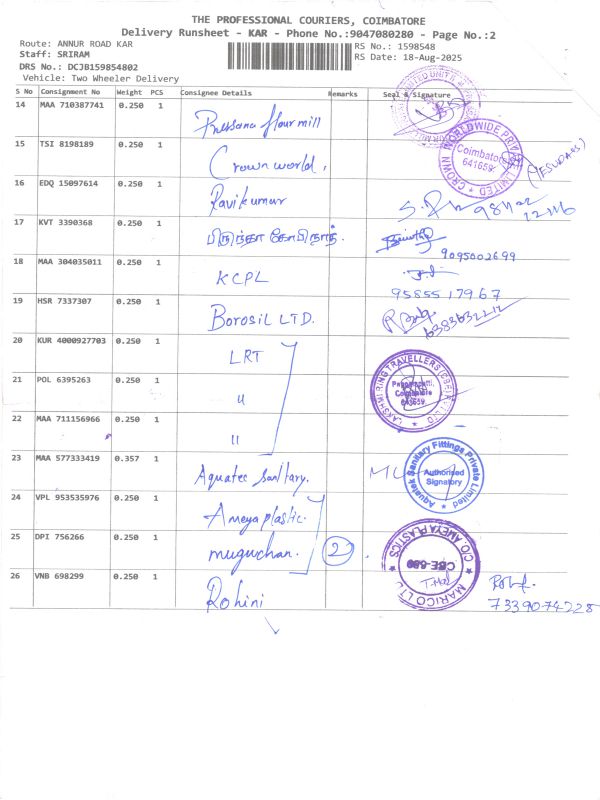 THE PROFESSIONAL COURIERS, COIMBATORE
Delivery Runsheet - KAR - Phone No.:9047080280 - Page No.:2
Route: ANNUR ROAD KAR
RS No.: 1598548
Staff: SRIRAM
RS Date: 18-Aug-2025
DRS No.: DCJB159854802
Vehicle: Two Wheeler Delivery
S No Consignment No Weight PCS Consignee Details Remarks Seal & Signature
14 MAA 710387741 0.250 1 flour mill
15 TSI 8198189 0.250 1 Crown world,
CROWN WORLDWIDE PRIVATE LIMITED
Coimbatore
641659.
(YESUDASS)
16 EDQ 15097614 0.250 1 Ravikumar
17 KVT 3390368 0.250 1
9095002699
18 MAA 304035011 0.250 1 KCPL
9585517967
19 HSR 7337307 0.250 1 Borosil LTD.
6383632212
20 KUR 4000927703 0.250 1 LRT
21 POL 6395263 0.250 1 "
22 MAA 711156966 0.250 1 "
LAKSHMI RING TRAVELLERS (CBE) P LTD
Coimbatore
641659
23 MAA 577333419 0.357 1 Aquatec sanitary.
Aquatek Sanitary Fittings Private Limited
Authorised
Signatory
24 VPL 953535976 0.250 1 Ameya plastic.
25 DPI 756266 0.250 1 muguchan. 2
MARICO LTD C/O. AMEYA PLASTICS
26 VNB 698299 0.250 1 Rohini
7339074228